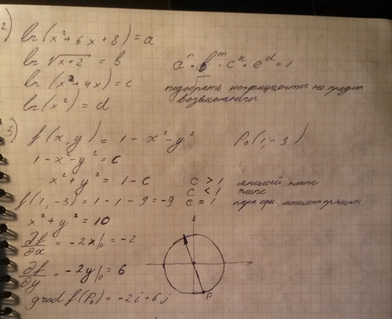 2)
ln(x²+6x+8)=a
ln√x+2 = b
ln(x²+4x)=c
ln(x²)=d
aⁿ·bᵐ·cᵏ·eᵈ=1
подобрать коэффициенты не
возможно
3)
f(x,y) = 1-x²-y² P₀(1,-3)
1-x-y²=c
x²+y²=1-c
c>1 мнимый
c<1
c=1 пара
f(1,-3)=1-1-9=-9
x²+y²=10
= -2x|₀=-2
∂f/∂y = -2y|₀=6
grad f(P₀)=-2i+6j
P